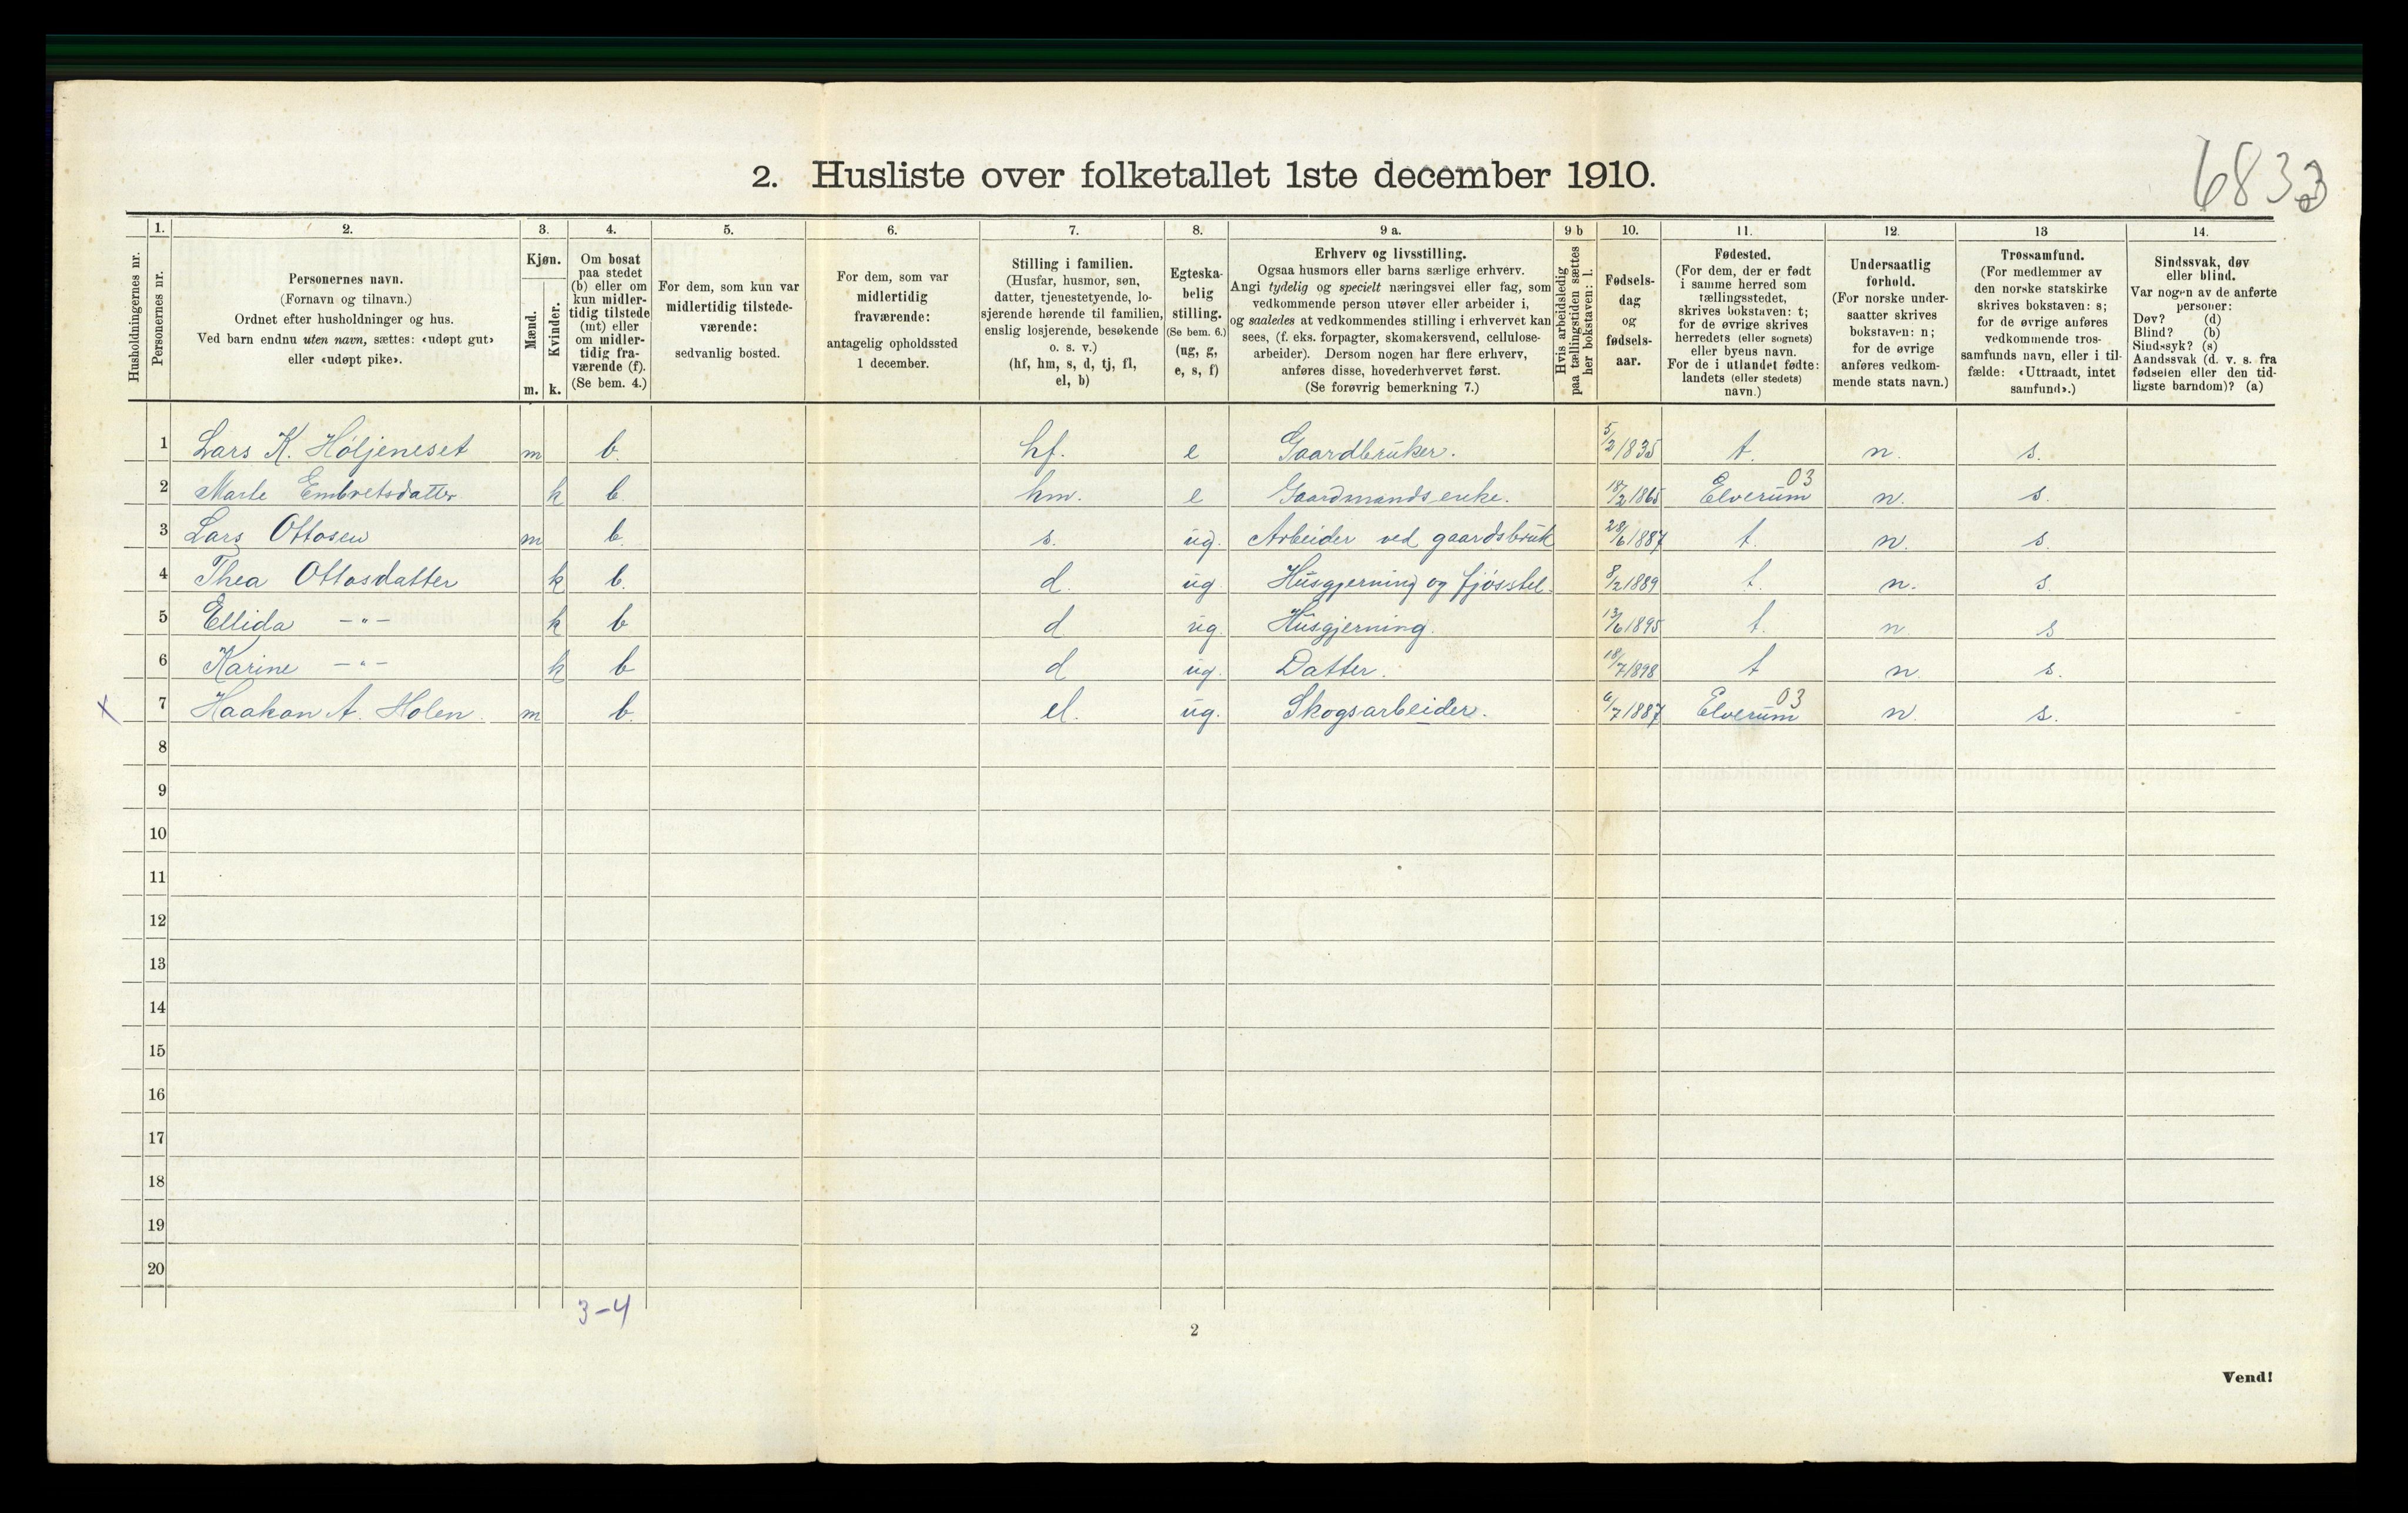 6833
2. Husliste over folketallet 1ste december 1910.
Husholdningernes nr.
1. Personernes nr.
2. Personernes navn. (Fornavn og tilnavn.) Ordnet efter husholdninger og hus. Ved barn endnu uten navn, sættes: «udøpt gut» eller «udøpt pike».
3. Kjøn. Mænd. m. Kvinder. k.
4. Om bosat paa stedet (b) eller om kun midlertidig tilstede (mt) eller om midlertidig fraværende (f). (Se bem. 4.)
5. For dem, som kun var midlertidig tilstedeværende: sedvanlig bosted.
6. For dem, som var midlertidig fraværende: antagelig opholdssted 1 december.
7. Stilling i familien. (Husfar, husmor, søn, datter, tjenestetyende, losjerende hørende til familien, enslig losjerende, besøkende o. s. v.) (hf, hm, s, d, tj, fl, el, b)
8. Egteskabelig stilling. (Se bem. 6.) (ug, g, e, s, f)
9 a. Erhverv og livsstilling. Ogsaa husmors eller barns særlige erhverv. Angi tydelig og specielt næringsvei eller fag, som vedkommende person utøver eller arbeider i, og saaledes at vedkommendes stilling i erhvervet kan sees, (f. eks. forpagter, skomakersvend, cellulosearbeider). Dersom nogen har flere erhverv, anføres disse, hovederhvervet først. (Se forøvrig bemerkning 7.)
9 b Hvis arbeidsledig paa tællingstiden sættes her bokstaven: l.
10. Fødselsdag og fødselsaar.
11. Fødested. (For dem, der er født i samme herred som tællingsstedet, skrives bokstaven: t; for de øvrige skrives herredets (eller sognets) eller byens navn. For de i utlandet fødte: landets (eller stedets) navn.)
12. Undersaatlig forhold. (For norske undersaatter skrives bokstaven: n; for de øvrige anføres vedkommende stats navn.)
13 Trossamfund. (For medlemmer av den norske statskirke skrives bokstaven: s; for de øvrige anføres vedkommende trossamfunds navn, eller i tilfælde: «Uttraadt, intet samfund».)
14. Sindssvak, døv eller blind. Var nogen av de anførte personer: Døv? (d) Blind? (b) Sindssyk? (s) Aandssvak (d. v. s. fra fødselen eller den tidligste barndom)? (a)
1 Lars K. Høljeneset m b. hf. e Gaardbruker. 5/2 1835 t. n. s.
2 Marte Embretsdatter k b. hm. e Gaardmandsenke. 18/2 1865 Elverum 03 n. s.
3 Lars Ottosen m b. s. ug. Arbeider ved gaardsbruk 28/6 1887 t. n. s.
4 Thea Ottosdatter k b. d. ug Husgjerning og fjøsstel. 8/2 1889 t. n. s.
5 Ellida -"- k b d ug. Husgjerning. 13/6 1895 t. n s
6 Karine -"- k b d ug. Datter. 18/7 1898 t n. s.
x 7 Haakon A. Holen. m b. el. ug. Skogsarbeider. 6/7 1887 Elverum 03 n. s.
8
9
10
11
12
13
14
15
16
17
18
19
20
3-4
2
Vend!